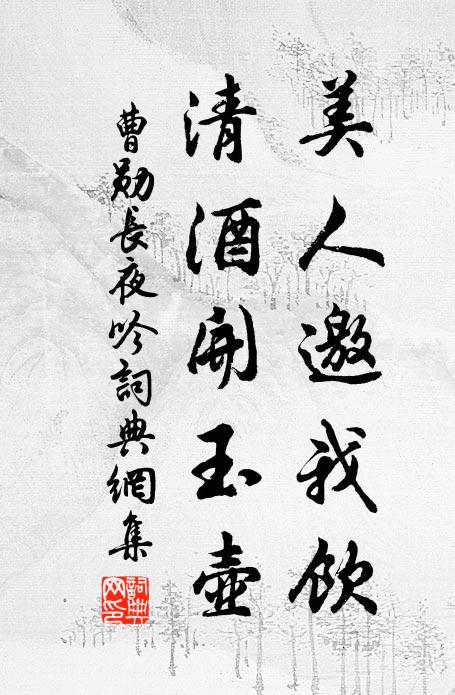 美人邀我飲
清酒開玉壺
曹勛長夜吟詞典網集
詞典網印